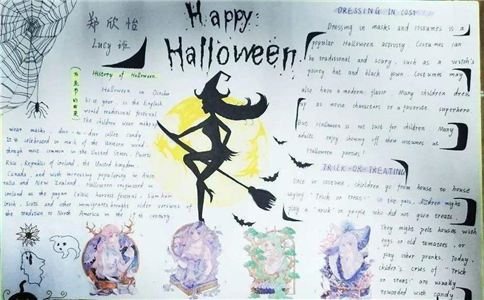 郑欣怡
Lucy 班
Happy
Halloween
History of Halloween
Halloween in October
31 is year, is the English
world traditional festival.
The children wear make-up
wear masks, door to door collec candy.
It is celebrated in much of the Western world
though most common in the United States, Puerto
Rico, Republic of Ireland, the United Kingdom,
Canada, and with increasing popularity in Austr
alia and New Zealand. Halloween originated in
Ireland as the pagan Celtic harvest festival, Samhain.
Irish, Scots and other immigrants brought older versions of
the tradition to North America in the 19 th century.
DRESSING IN COST
Dressing in masks and costumes is a
popular Halloween activity. Costumes can
be traditional and scary, such as a witch's
pointy hat and black gown. Costumes may
also have a modern flavor. Many children dress
up as movie characters or a favorite superhero
But Halloween is not just for children. Many
adults enjoy showing off their costumes at
Halloween parties!
TRICK-OR-TREATING
Once in costume, children go from house to house
saying "Trick or treat". In years gone, children might
play a "trick" on people who did not give treats.
They might pelt houses with
eggs or old tomatoes, or
play other pranks. Today,
children's cries of "Trick
or treat" are usually
rewarded with candy